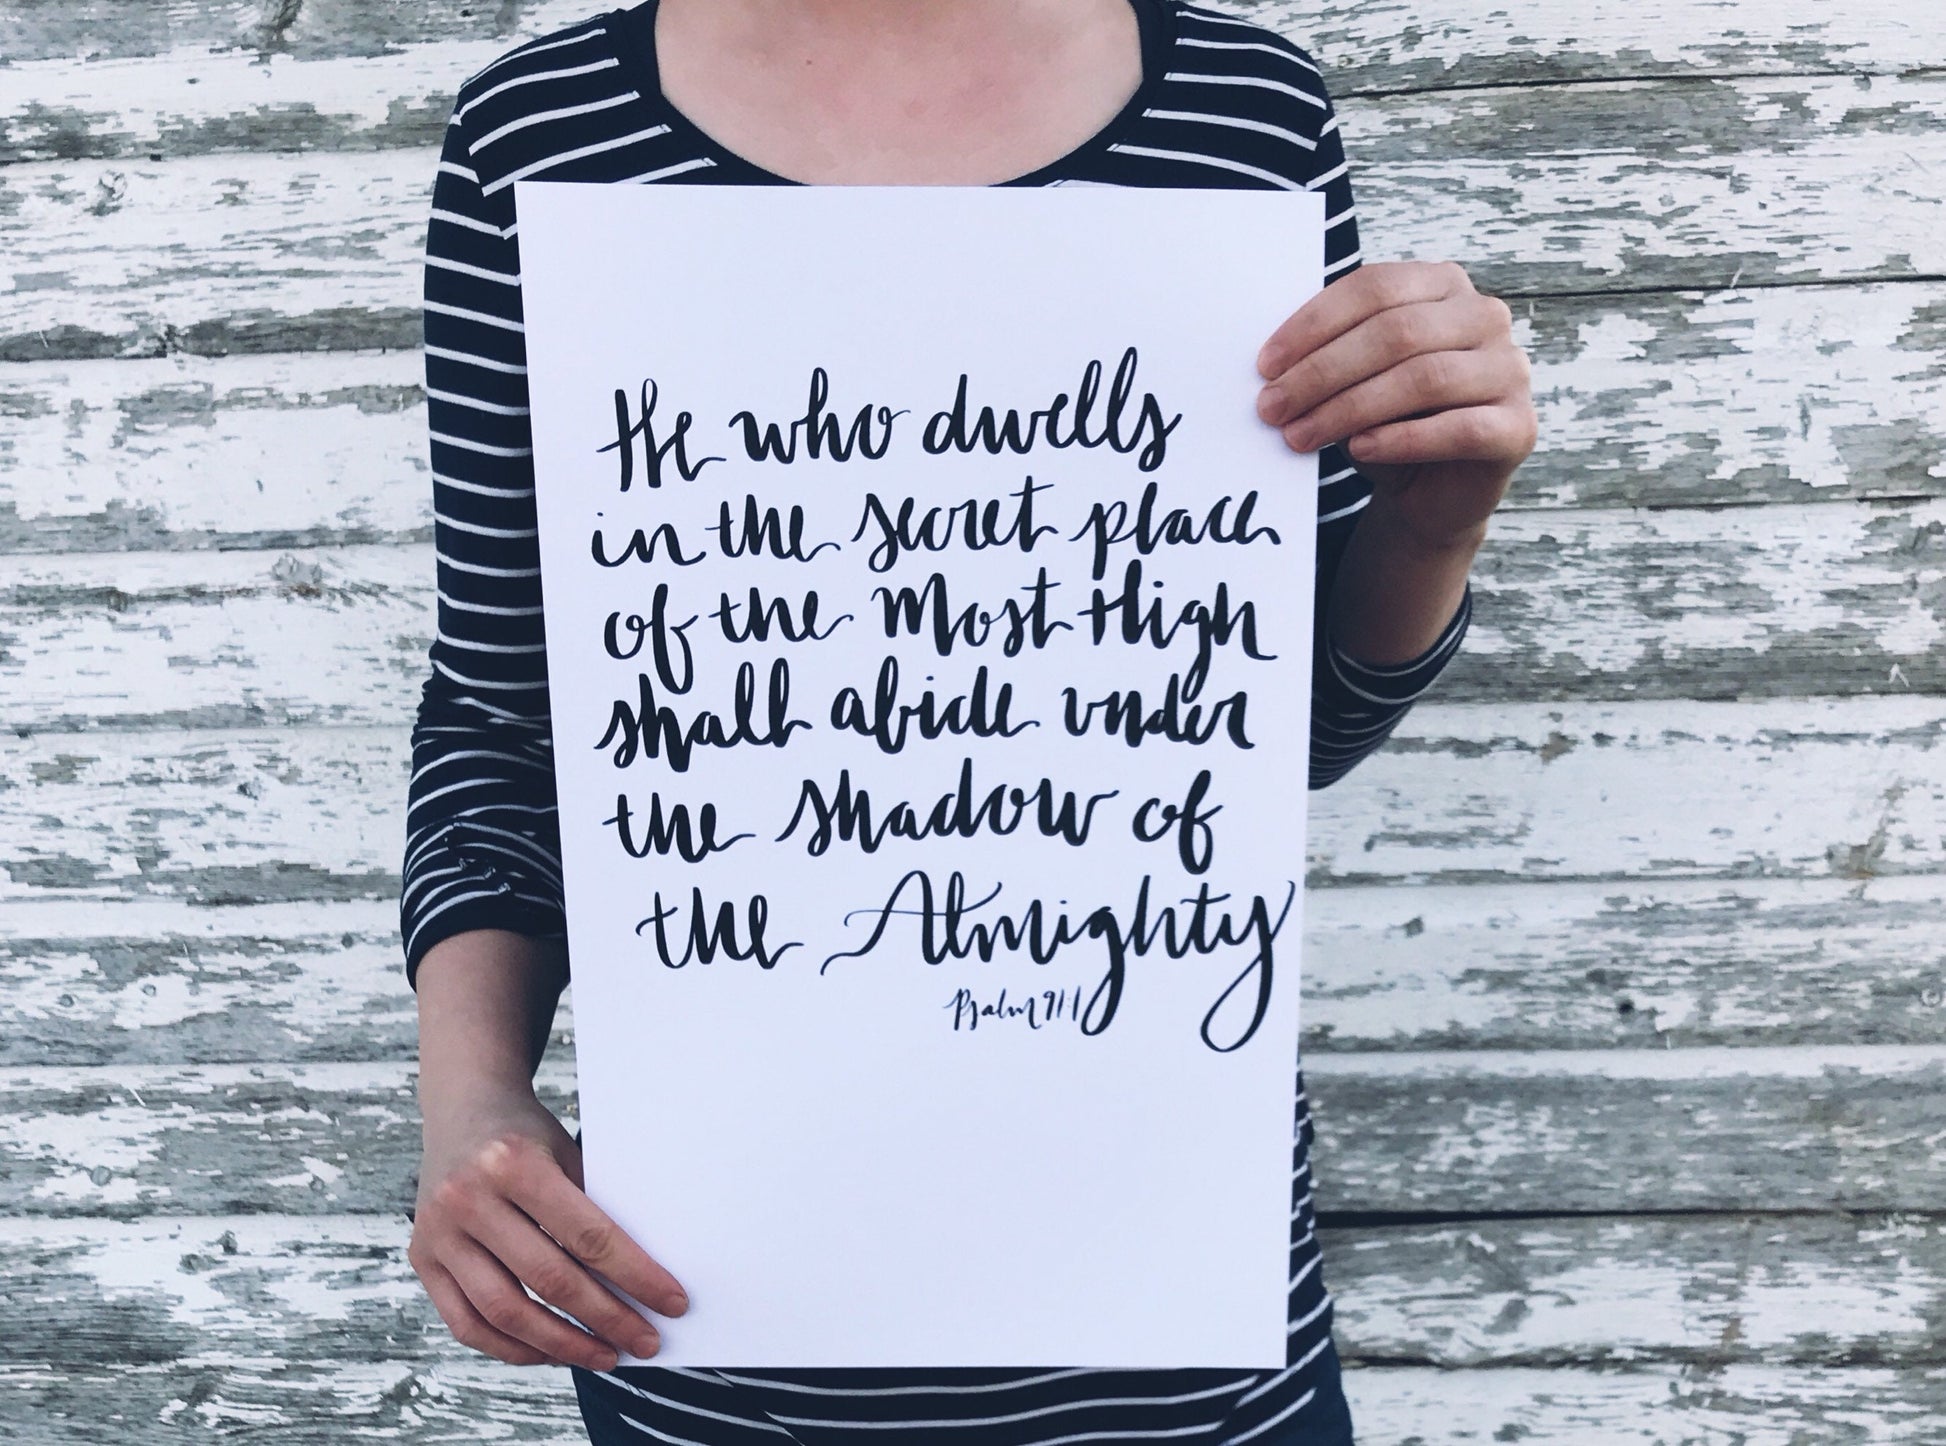 He who dwells
in the secret place
of the Most High
shall abide under
the shadow of
the Almighty
Psalm 91:1